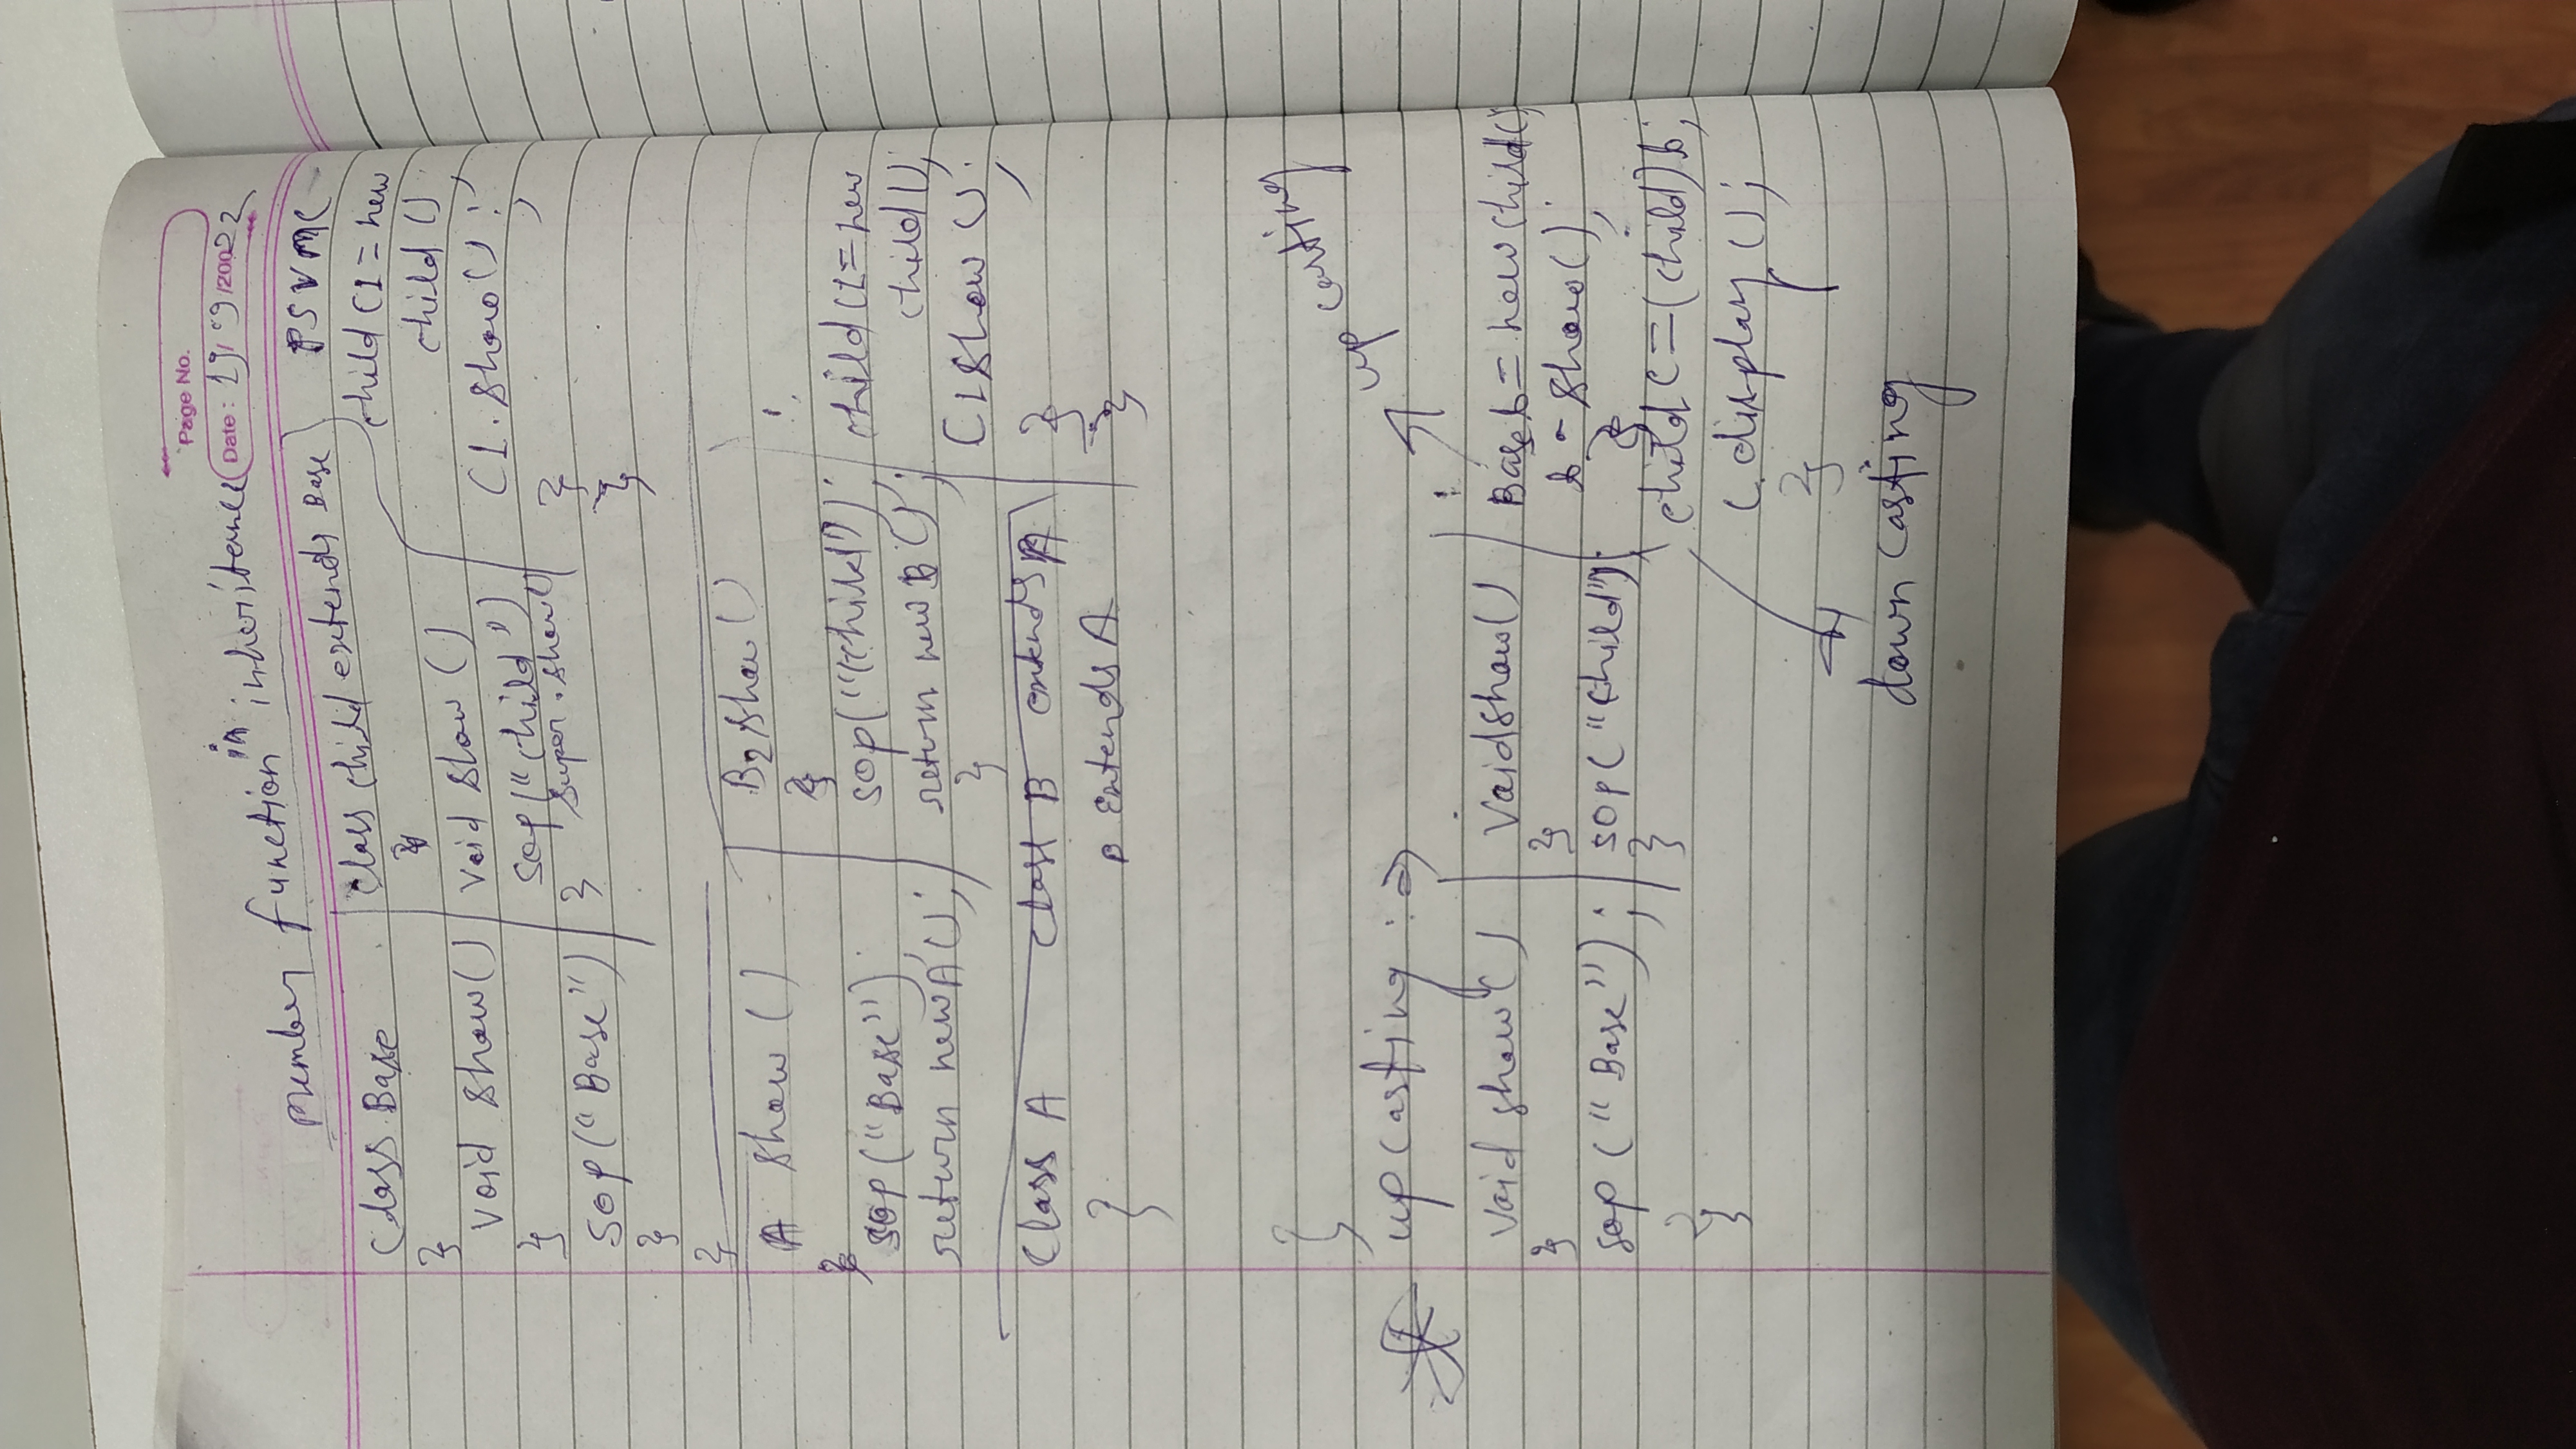 Page No.
Date : 19/09/20022
member function in inheritance
Class Base
}
void show()
}
sop("Base")
}
}
class child extends Base
}
void show ()
sop("child")
super.show()
}
PSVM(
child C1 = new
child ();
C1.show();
}
}
A show ()
}
sop("Base");
return new A();
B2show ()
}
sop("child");
return new B();
}
:
child C1 = new
child();
C1show ();
}
}
Class A
class B extends A
}
B extends A
}
up casting : ⇒
up casting
void show()
}
sop ("Base");
}
void show()
}
sop("child");
}
:
Base b = new child()
b - show();
}
child c = (child)b;
c.display ();
}
down casting